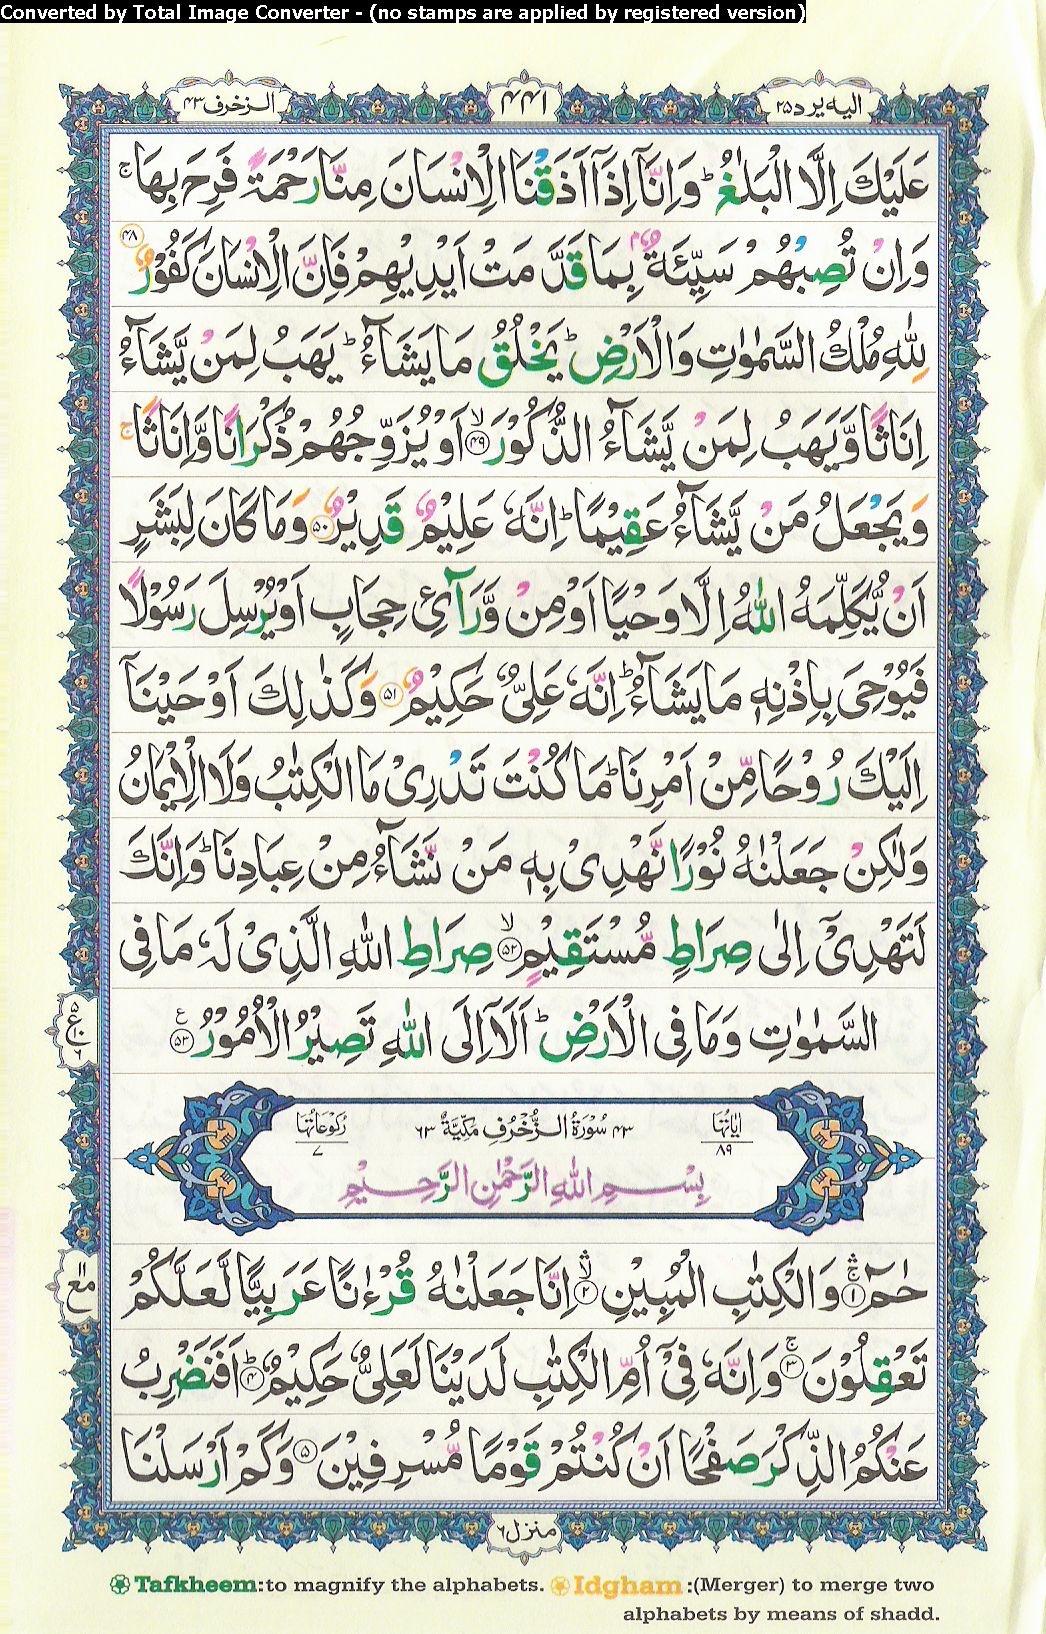 Converted by Total Image Converter - (no stamps are applied by registered version)
اليه يرد ٢٥
٤٤١
الزخرف ٤٣
عَلَيْكَ اِلَّا الْبَلٰغُ ؕ وَ اِنَّاۤ اِذَاۤ اَذَقْنَا الْاِنْسَانَ مِنَّا رَحْمَةً فَرِحَ بِهَا ۚ
وَ اِنْ تُصِبْهُمْ سَیِّئَةٌۢ بِمَا قَدَّمَتْ اَیْدِیْهِمْ فَاِنَّ الْاِنْسَانَ كَفُوْرٌ ۴۸
لِلّٰهِ مُلْكُ السَّمٰوٰتِ وَ الْاَرْضِ ؕ یَخْلُقُ مَا یَشَآءُ ؕ یَهَبُ لِمَنْ یَّشَآءُ
اِنَاثًا وَّ یَهَبُ لِمَنْ یَّشَآءُ الذُّكُوْرَ ۙ۴۹ اَوْ یُزَوِّجُهُمْ ذُكْرَانًا وَّ اِنَاثًا ۚ
وَ یَجْعَلُ مَنْ یَّشَآءُ عَقِیْمًا ؕ اِنَّهٗ عَلِیْمٌ قَدِیْرٌ ۵۰ وَ مَا كَانَ لِبَشَرٍ
اَنْ یُّكَلِّمَهُ اللّٰهُ اِلَّا وَحْیًا اَوْ مِنْ وَّرَآئِ حِجَابٍ اَوْ یُرْسِلَ رَسُوْلًا
فَیُوْحِیَ بِاِذْنِهٖ مَا یَشَآءُ ؕ اِنَّهٗ عَلِیٌّ حَكِیْمٌ ۵۱ وَ كَذٰلِكَ اَوْحَیْنَاۤ
اِلَیْكَ رُوْحًا مِّنْ اَمْرِنَا ؕ مَا كُنْتَ تَدْرِیْ مَا الْكِتٰبُ وَ لَا الْاِیْمَانُ
وَ لٰكِنْ جَعَلْنٰهُ نُوْرًا نَّهْدِیْ بِهٖ مَنْ نَّشَآءُ مِنْ عِبَادِنَا ؕ وَ اِنَّكَ
لَتَهْدِیْۤ اِلٰی صِرَاطٍ مُّسْتَقِیْمٍ ۙ۵۲ صِرَاطِ اللّٰهِ الَّذِیْ لَهٗ مَا فِی
السَّمٰوٰتِ وَ مَا فِی الْاَرْضِ ؕ اَلَاۤ اِلَی اللّٰهِ تَصِیْرُ الْاُمُوْرُ ۵۳
۵ ع ۶
اٰیَاتُهَا ٨٩
٤٣ سُوْرَةُ الزُّخْرُفِ مَكِّیَّةٌ ٦٣
رُكُوْعَاتُهَا ٧
بِسْمِ اللّٰهِ الرَّحْمٰنِ الرَّحِیْمِ
حٰمٓ ۱ وَ الْكِتٰبِ الْمُبِیْنِ ۲ اِنَّا جَعَلْنٰهُ قُرْءٰنًا عَرَبِیًّا لَّعَلَّكُمْ
مع
تَعْقِلُوْنَ ۚ۳ وَ اِنَّهٗ فِیْۤ اُمِّ الْكِتٰبِ لَدَیْنَا لَعَلِیٌّ حَكِیْمٌ ؕ۴ اَفَنَضْرِبُ
عَنْكُمُ الذِّكْرَ صَفْحًا اَنْ كُنْتُمْ قَوْمًا مُّسْرِفِیْنَ ۵ وَ كَمْ اَرْسَلْنَا
منزل ٦
Tafkheem:to magnify the alphabets. Idgham :(Merger) to merge two
alphabets by means of shadd.